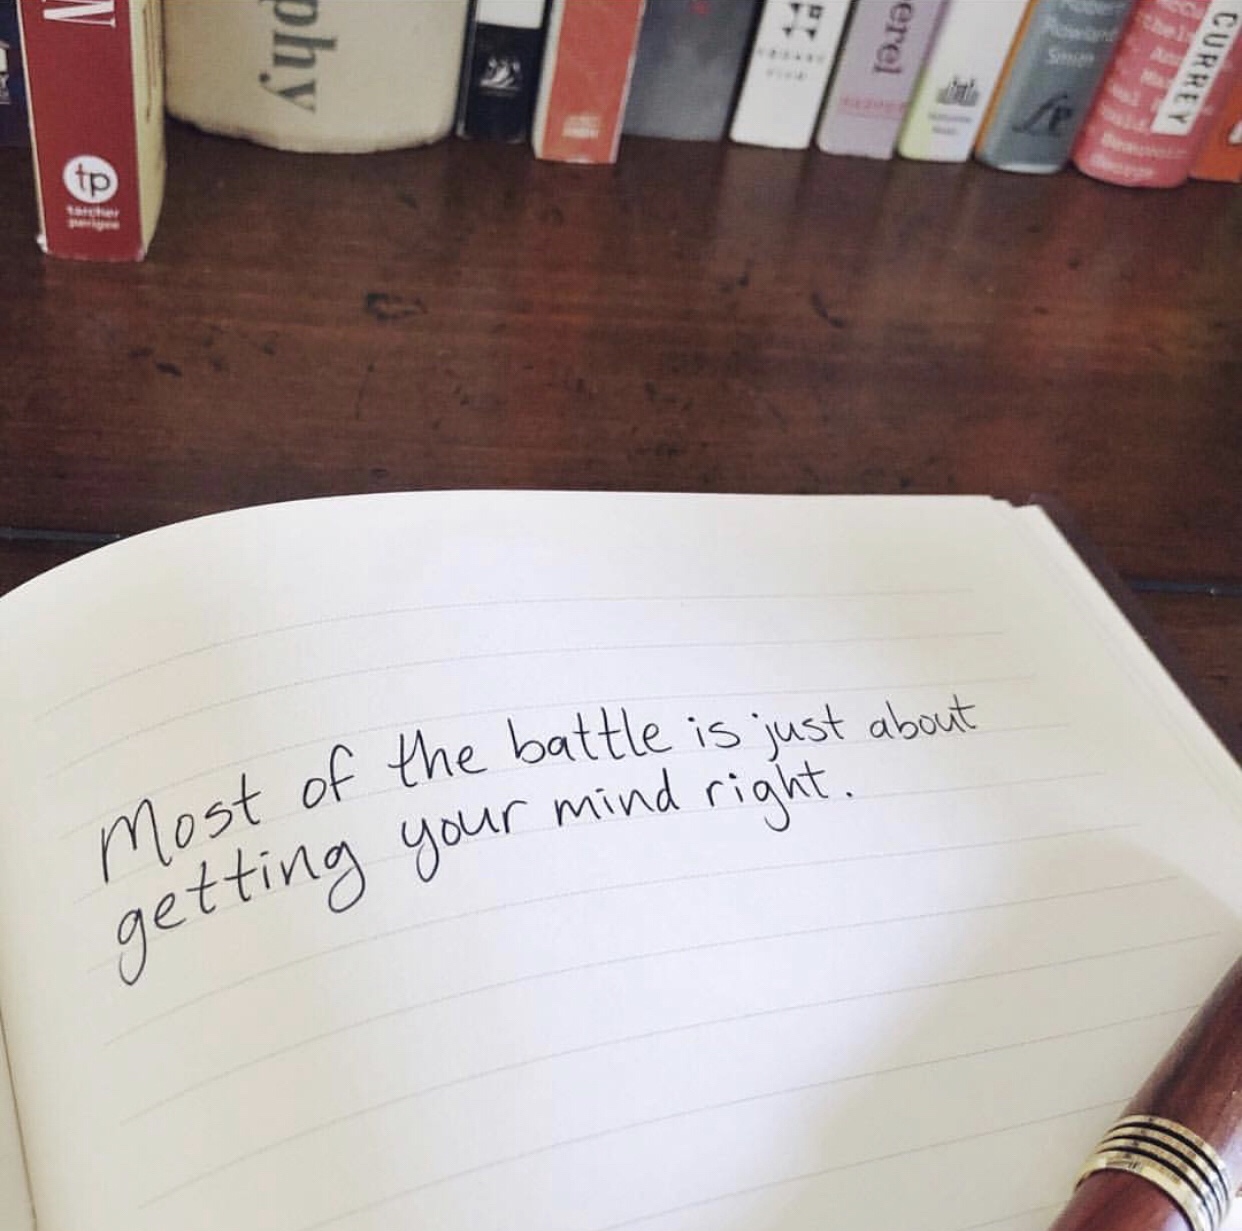 N
tp
tarcher
perigee
phy
erel
Robert
Rowland
Smith
CURREY
Most of the battle is just about
getting your mind right.